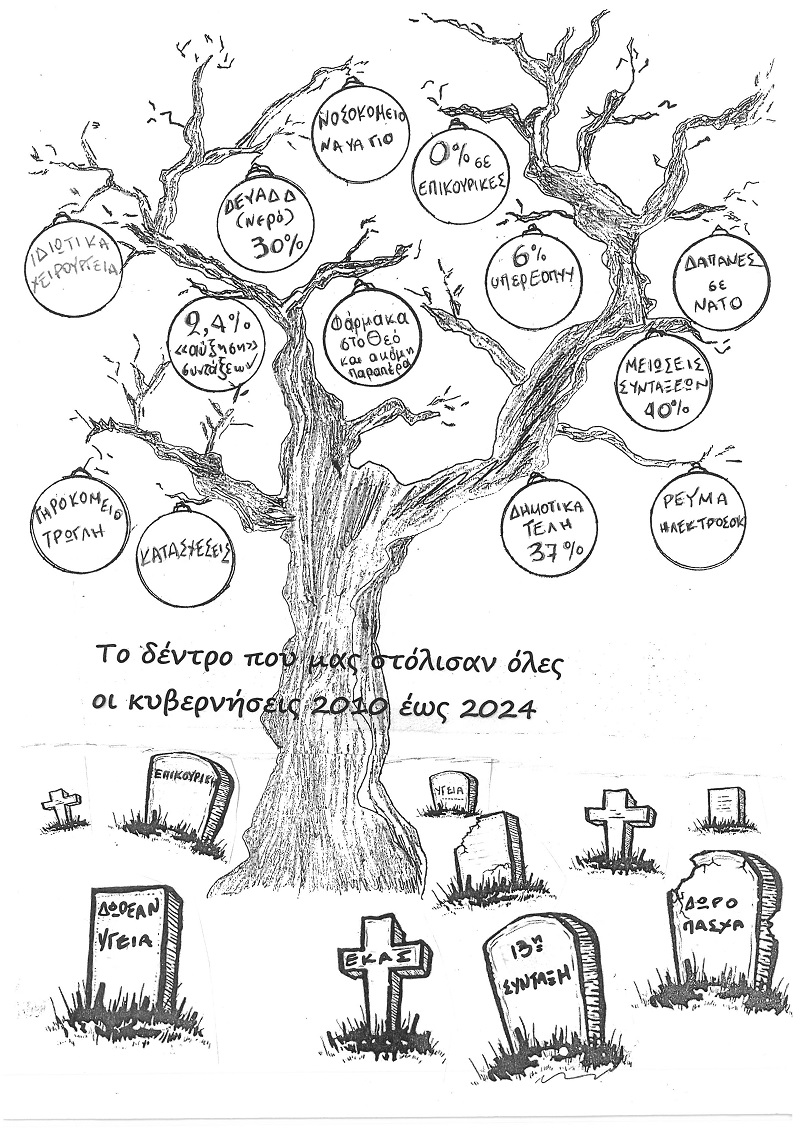 ΝΟΣΟΚΟΜΕΙΟ
ΝΑΥΑΓΙΟ
0% σε
ΕΠΙΚΟΥΡΙΚΕΣ
ΔΕΥΑΔΔ
(νερό)
30%
ΙΔΙΩΤΙΚΑ
ΧΕΙΡΟΥΡΓΕΙΑ
6%
υπέρΕΟΠΥΥ
ΔΑΠΑΝΕΣ
ΣΕ
ΝΑΤΟ
2,4%
«αύξηση»
συντάξεων
Φάρμακα
στο Θεό
και ακόμη
παραπέρα
ΜΕΙΩΣΕΙΣ
ΣΥΝΤΑΞΕΩΝ
40%
ΓΗΡΟΚΟΜΕΙΟ
ΤΡΩΓΛΗ
ΚΑΤΑΣΧΕΣΕΙΣ
ΔΗΜΟΤΙΚΑ
ΤΕΛΗ
37%
ΡΕΥΜΑ
ΗΛΕΚΤΡΟΣΟΚ
Το δέντρο που μας στόλισαν όλες
οι κυβερνήσεις 2010 έως 2024
ΕΠΙΚΟΥΡΙΚΗ
ΥΓΕΙΑ
ΔΩΡΕΑΝ
ΥΓΕΙΑ
ΕΚΑΣ
13η
ΣΥΝΤΑΞΗ
ΔΩΡΟ
ΠΑΣΧΑ